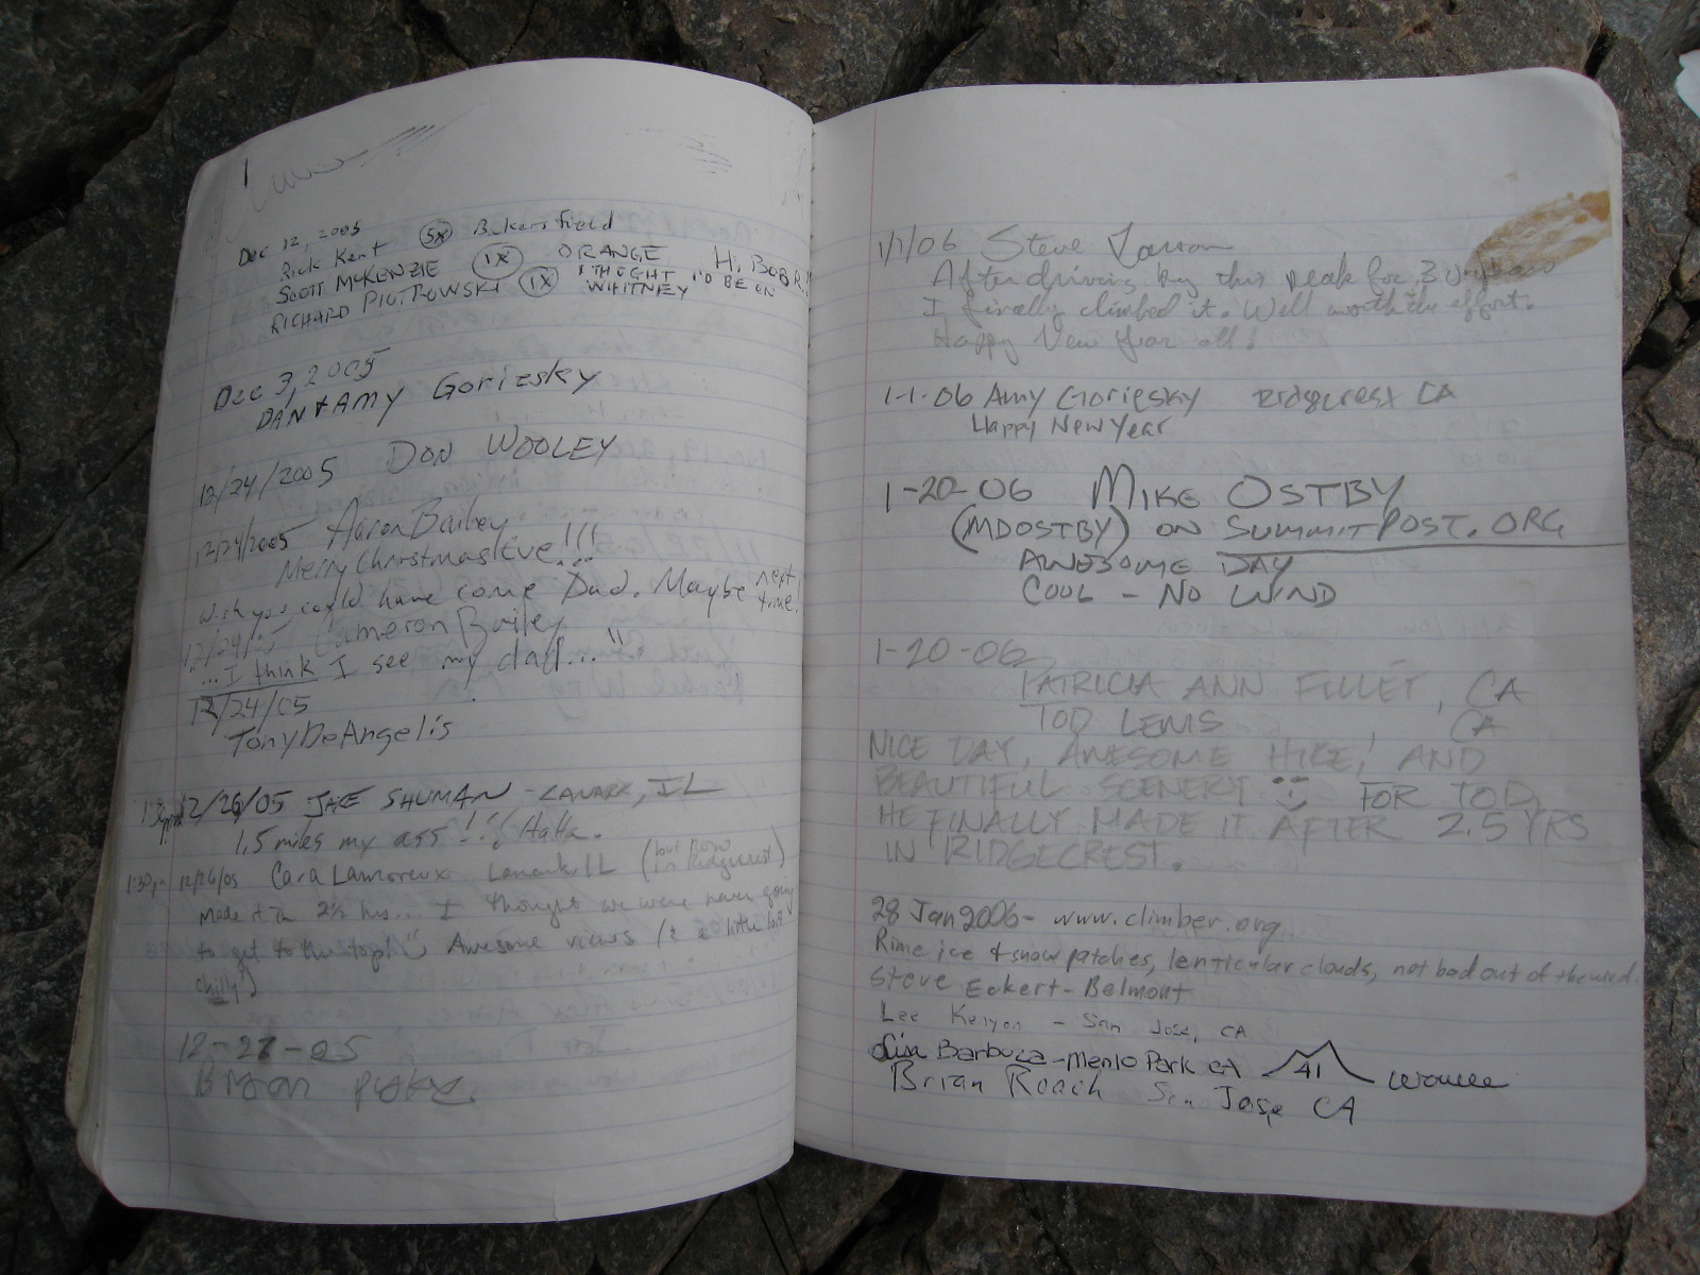 1
Dec 12, 2005
Rick Kent 5x Bakersfield
SCOTT MCKENZIE 1X ORANGE HI BOB R.!
RICHARD PIOTROWSKI 1X I THOUGHT I'D BE ON
WHITNEY
Dec 3, 2005
DAN & AMY Goriesky
12/24/2005 DON WOOLEY
12/24/2005 Aaron Bailey
Merry Christmas Eve!!!
Wish you could have come Dad. Maybe next
time!
12/24/05 Cameron Bailey
"...I think I see my dad..."
12/24/05
Tony DeAngelis
1:30pm 12/26/05 JAKE SHUMAN - LANARK, IL
1.5 miles my ass!!! Haha.
1:30pm 12/26/05 Cara Lamoreux Lanark, IL (but now
in Ridgecrest)
Made it in 2½ hrs... I thought we were never going
to get to the top! Awesome views (& a little bit
chilly!)
12-27-05
1/1/06 Steve Larson
After driving by this peak for 30 years
I finally climbed it. Well worth the effort.
Happy New Year all!
1-1-06 Amy Goriesky Ridgecrest CA
Happy New Year
1-20-06 MIKE OSTBY
(MDOSTBY) ON SUMMITPOST.ORG
AWESOME DAY
COOL - NO WIND
1-20-06
PATRICIA ANN FILLET, CA
TOD LEWIS, CA
NICE DAY, AWESOME HIKE, AND
BEAUTIFUL SCENERY FOR TOD,
HE FINALLY MADE IT AFTER 2.5 YRS
IN RIDGECREST.
28 Jan 2006 - www.climber.org
Rime ice & snow patches, lenticular clouds, not bad out of the wind.
Steve Eckert - Belmont
Lee Kenyon - San Jose, CA
Lisa Barboza - Menlo Park CA 41
Brian Roach San Jose CA